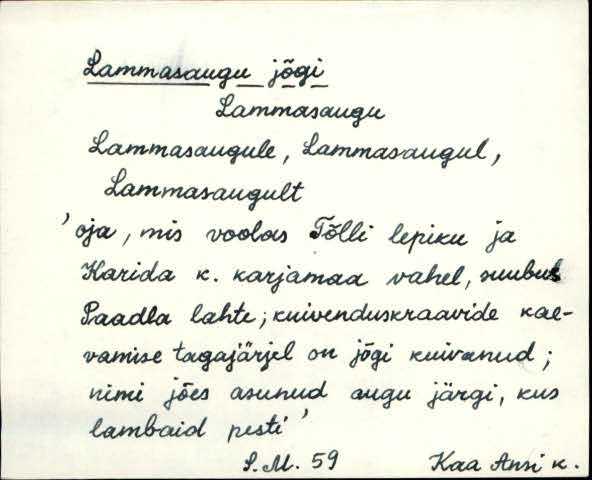 Lammasaugu jõgi
Lammasaugu
Lammasaugule, Lammasaugul,
Lammasaugult
'oja, mis voolas Tõlli lepiku ja
Karida k. karjamaa vahel, suubus
Saadla lahte; kuivenduskraavide kae-
vamise tagajärjel on jõgi kuivanud;
nimi jões asunud augu järgi, kus
lambaid pesti'
S.M. 59 Kaa Ansi k.